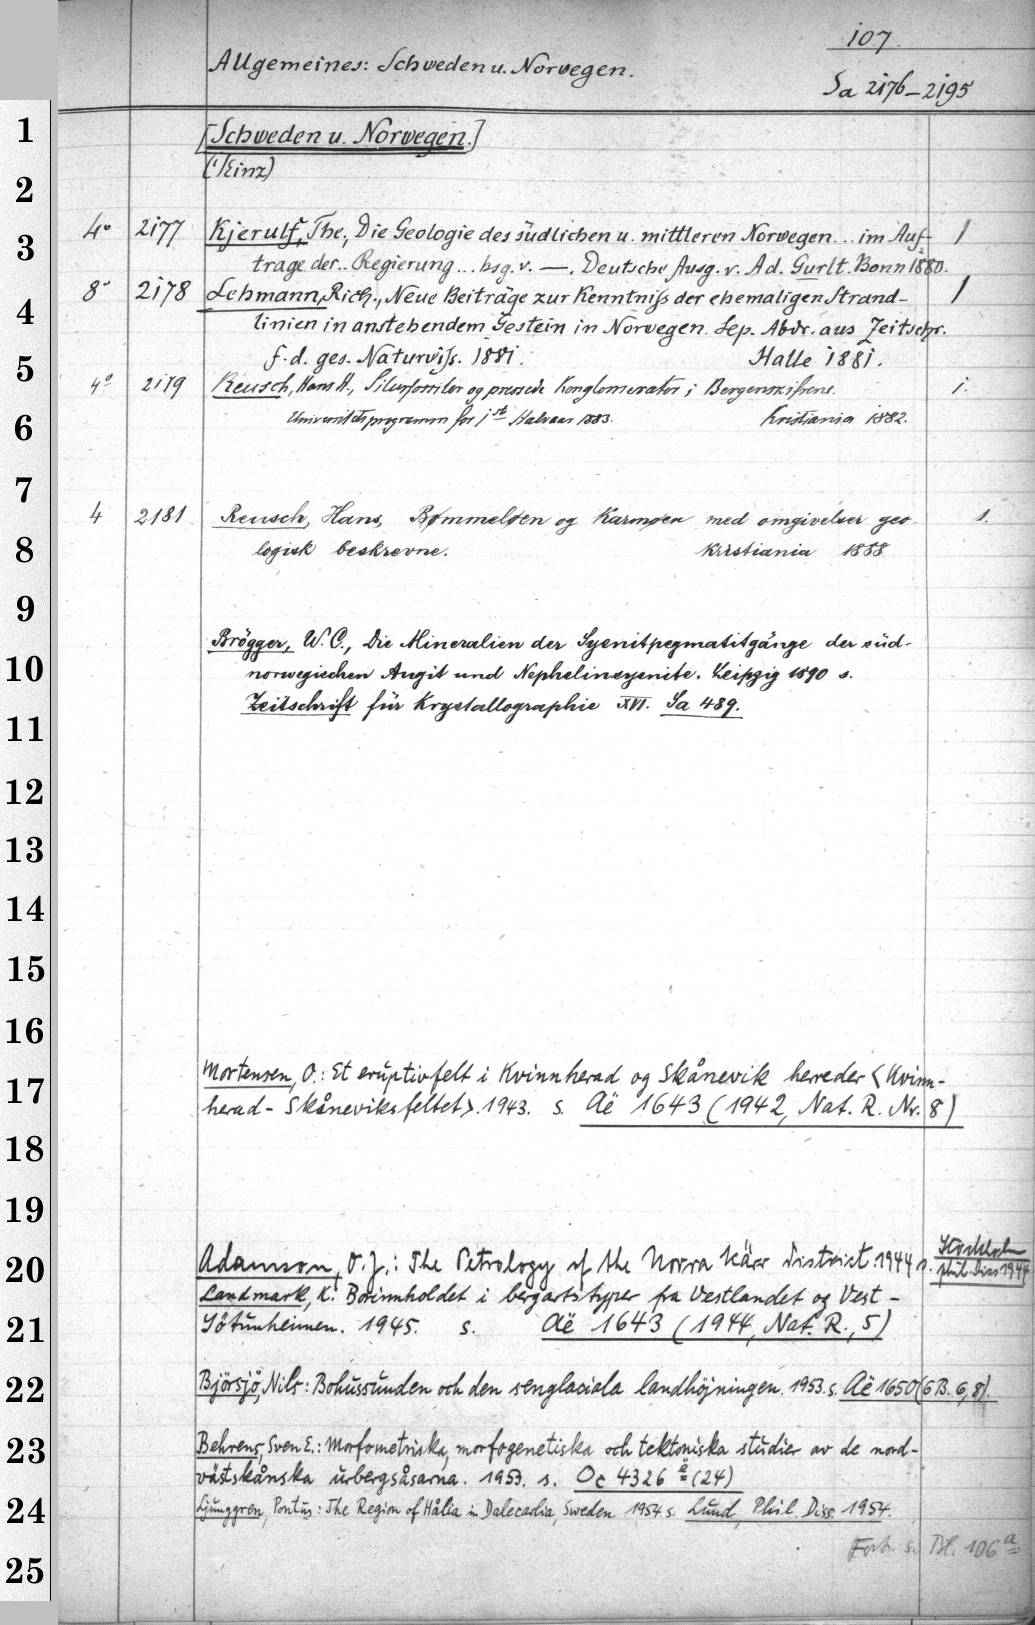 107
Allgemeines: Schweden u. Norwegen.
Sa 2176-2195
1
[Schweden u. Norwegen.]
(1/Einz)
2
3
4° 2177 Kjerulf, The., Die Geologie des südlichen u. mittleren Norwegen... im Auf- 1
trage der.. Regierung... hsg. v. —. Deutsche Ausg. v. Ad. Gurlt. Bonn 1880.
4
8° 2178 Lehmann, Rich., Neue Beiträge zur Kenntniß der ehemaligen Strand- 1
linien in anstehendem Gestein in Norwegen. Sep. Abdr. aus Zeitschr.
5
f. d. ges. Naturwiß. 1881. Halle 1881.
4° 2179 Reusch, Hans H., Silurfossiler og pressede Konglomerater i Bergensskifrene. 1.
6
Universitetsprogramm for 1st Halvaar 1883. Kristiania 1882.
7
4 2181 Reusch, Hans, Bømmeløen og Karmøen med omgivelser geo- s.
8
logisk beskrevne. Kristiania 1888
9
Brögger, W. C., Die Mineralien der Syenitpegmatitgänge der süd-
10
norwegischen Augit und Nephelinsyenite. Leipzig 1890 s.
Zeitschrift für Krystallographie XVI. Sa 489.
11
12
13
14
15
16
Mortensen, O.: Et eruptivfelt i Kvinnherad og Skånevik herreder <Kvinn-
17
herad-Skåneviksfeltet>. 1943. s. Aë 1643 (1942, Nat. R. Nr. 8)
18
19
20
Adamson, O. J.: The Petrology of the Norra Kärr District. 1944 s. Stockholm
phil. Diss 1944
Landmark, K: Borinnholdet i bergartstyper fra Vestlandet og Vest-
21
Jötunheimen. 1945. s. Aë 1643 (1944, Nat. R., 5)
22
Björsjö, Nils: Bohussunden och den senglaciala landhöjningen. 1953. s. Aë 1650 (6 B. 6,8).
23
Behrens, Sven E.: Morfometriska, morfogenetiska och tektoniska studier av de nord-
västskånska urbergsåsarna. 1953. s. Oc 4326 a (24)
24
Ljunggren, Pontus: The Region of Hålia in Dalecarlia, Sweden. 1954 s. Lund, Phil. Diss. 1954.
Forts. s. Bl. 106 a
25